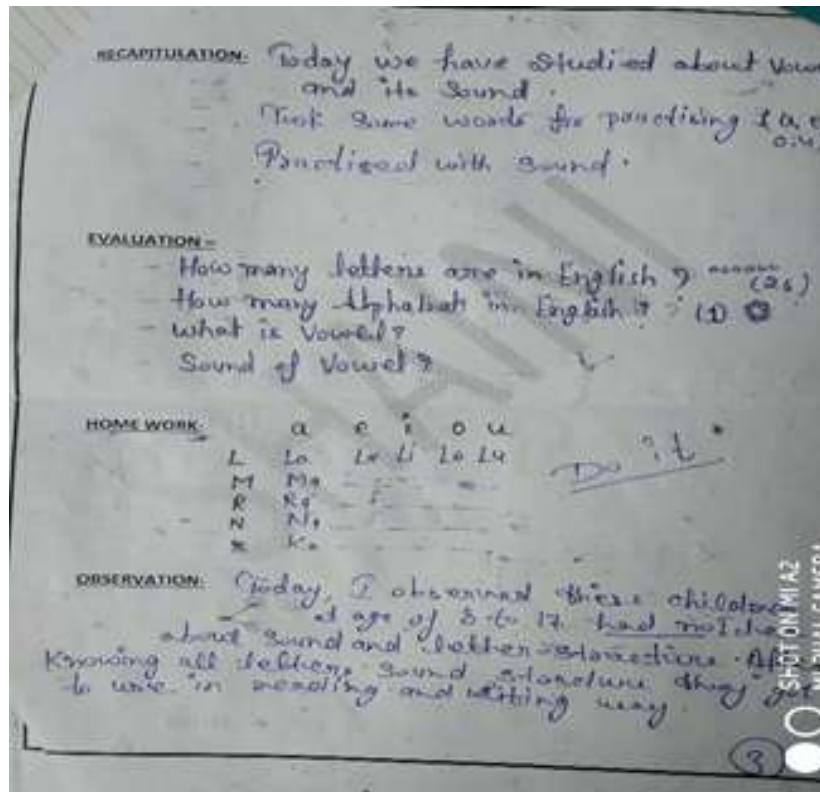 RECAPITULATION- Today we have studied about Vow
and its Sound.
Took Some words for practising
Practised with Sound.
EVALUATION-
- How many letters are in English ? (26)
- How many Alphabet in English ? (1)
- What is Vowel?
Sound of Vowel?
HOME WORK- a e i o u
L La Le Li Lo Lu
M Ma
R Ra
N Na
K Ka
Do it
OBSERVATION- Today, I observed these children
at age of to 12 had not
about Sound and letter structure.
Knowing all letters, Sound structure they got
to use in reading and writing way.
3
SHOT ON MI A2
MI DUAL CAMERA